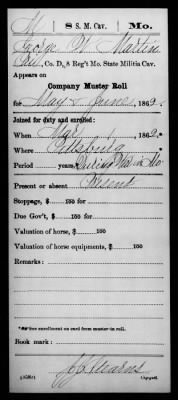 M 8 S. M. Cav. Mo.
George W. Martin
Co. D, 8 Reg't Mo. State Militia Cav.
Appears on
Company Muster Roll
for May & June, 186
Joined for duty and enrolled:
When Mar 1, 1862.
Where Pittsburg
Period years During War in Mo
Present or absent Present
Stoppage, $ 150 for
Due Gov't, $ 150 for
Valuation of horse, $ 150
Valuation of horse equipments, $ 150
Remarks:
*See enrollment on card from muster-in roll.
Book mark:
Stearns
Copyist.